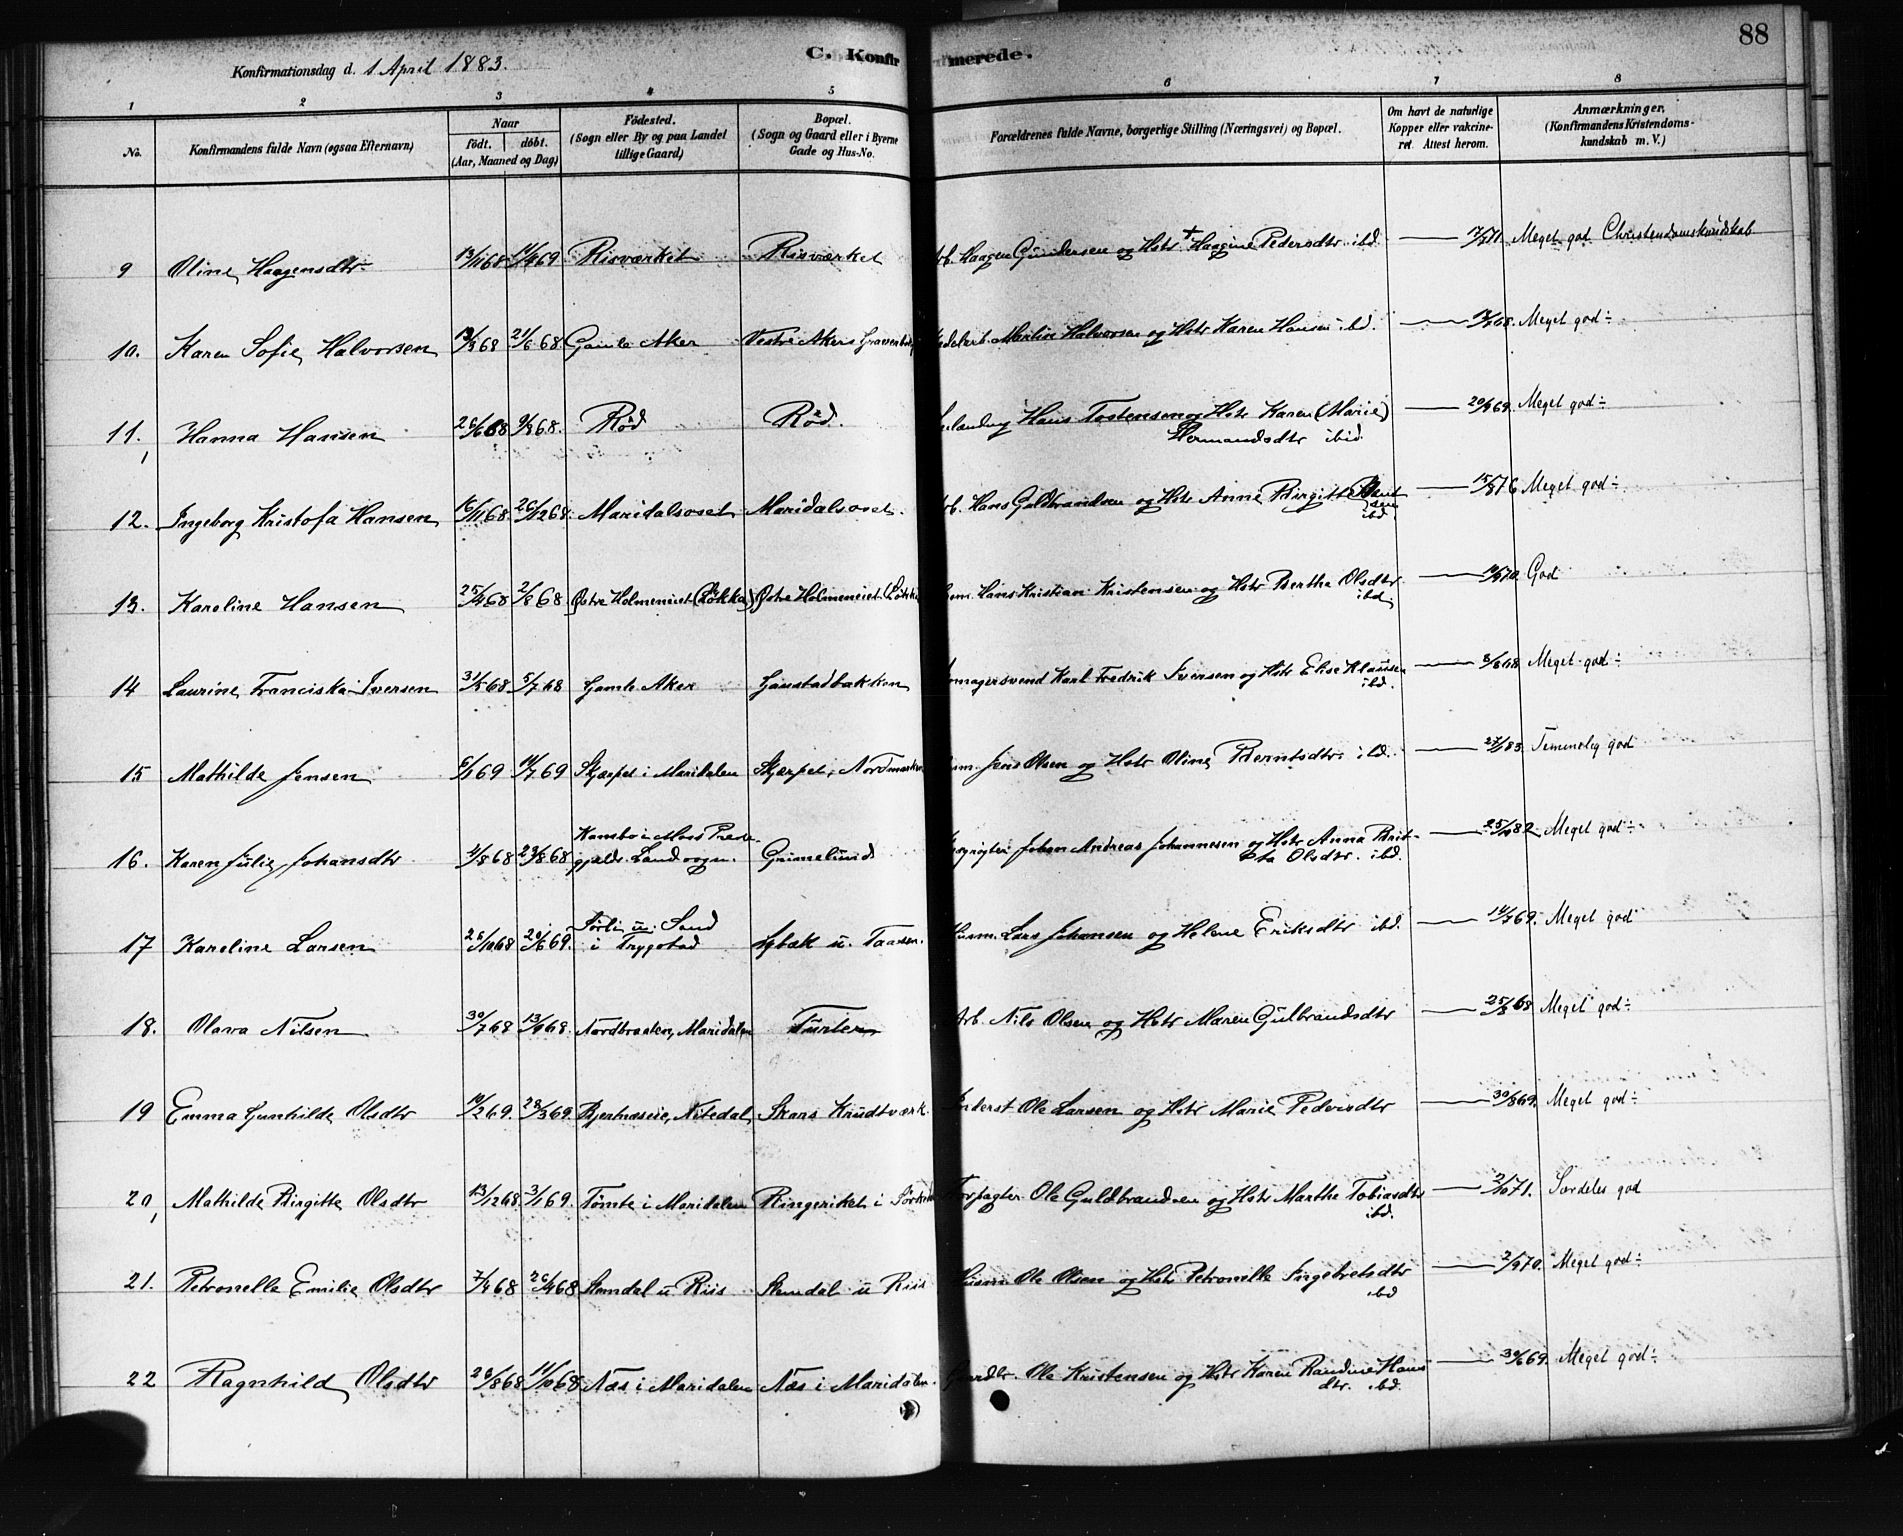 88
Konfirmationsdag d. 1 April 1883.
C. Konfirmerede.
1 2 3 4 5 6 7 8
No.
Konfirmandens fulde Navn (ogsaa Efternavn)
Naar
født. døbt.
(Aar, Maaned og Dag)
Fødested.
(Sogn eller By og paa Landet
tillige Gaard)
Bopæl.
(Sogn og Gaard eller i Byerne
Gade og Hus-No.
Forældrenes fulde Navne, borgerlige Stilling (Næringsvei) og Bopæl.
Om havt de naturlige
Kopper eller vakcine-
ret. Attest herom.
Anmærkninger.
(Konfirmandens Kristendoms-
kundskab m. V.)
9 Oline Haagensdtr 13/11 68 Risværket Risværket Arb. Haagen Gundersen og Hstr + Haagine Pedersdtr ibd. Meget god Christendomskundskab
10. Karen Sofie Halvorsen 21/6 68 Gamle Aker Vestre Akers Martin Halvorsen og Hstr Karen Hansen ibd. Meget god ÷
11. Hanna Hansen 26/6 68 9/8 68. Rød Rød. Hans Tostensen og Hstr Karen (Marie) 20/9 69. Meget god ÷
Hermandsdtr ibid.
12. Ingeborg Kristofa Hansen 16/11 68 26/12 68. Maridalsoset Maridalsoset. Arb. Hans Guldbrandsen og Hstr Anne Birgitte 15/8 76 Meget god ÷
ibd.
13. Karoline Hansen 25/4 68 2/8 68 Østre Holmeneiet (Løkka) Østre Holmeneiet (Løkka) Hans Kristian Kristensen og Hstr Berthe Olsdtr God
ibd.
14 Laurine Franciska Iversen 31/5 68 5/7 68 Gamle Aker Gaustadbakken Karl Fredrik Iversen og Hstr Elise Klausen Meget god ÷
ibd.
15 Mathilde Jensen 6/1 69 11/7 69 Skjærpet i Maridalen Skjærpet, Nordmarken Husm. Jens Olsen og Hstr Oline Berntsdtr ibd. 27/1 83. Temmelig god
16. Karen Julie Johansdtr 4/8 68 23/8 68 Kambo i Moss Præste- Grimelund Johan Andreas Johannesen og Hstr Anna Brit- 25/9 82 Meget god ÷
gjæld. Landsogn. ta Olsdtr. ibd.
17 Karoline Larsen 26/10 68 20/6 69. Sørli u. Sand Lybæk u. Taasen. Husm. Lars Johansen og Helene Eriksdtr ibd. 14/7 69. Meget god
i Trygstad
18. Olava Nilsen 30/7 68 13/9 68. Nordbraaten, Maridalen Turter Arb. Nils Olsen og Hstr Maren Gulbrandsdtr 25/8 68 Meget god ÷
19 Emma Gunhilde Olsdtr 14/2 69. 28/3 69. Bjerkeseie, Nitedal Skars Krudtværk. Inderst Ole Larsen og Hstr Marie Pedersdtr 30/8 69. Meget god ÷
20, Mathilde Birgitte Olsdtr 13/12 68 3/1 69. Tømte i Maridalen Ringeriket i Forpagter Ole Guldbrandsen og Hstr Marthe Tobiasdtr 2/10 71. Særdeles god
ibd.
21. Petronelle Emilie Olsdtr 7/4 68 26/4 68 Stemdal u Riis Stemdal u Riis Husm Ole Olsen og Hstr Petronelle Ingebretsdtr 2/9 70. Meget god ÷
ibd
22 Ragnhild Olsdtr 26/8 68 11/10 68 Næs i Maridalen Næs i Maridalen. Gaardbr. Ole Kristensen og Hstr Karen Randine Hans 30/6 69. Meget god ÷
dtr. ibd.